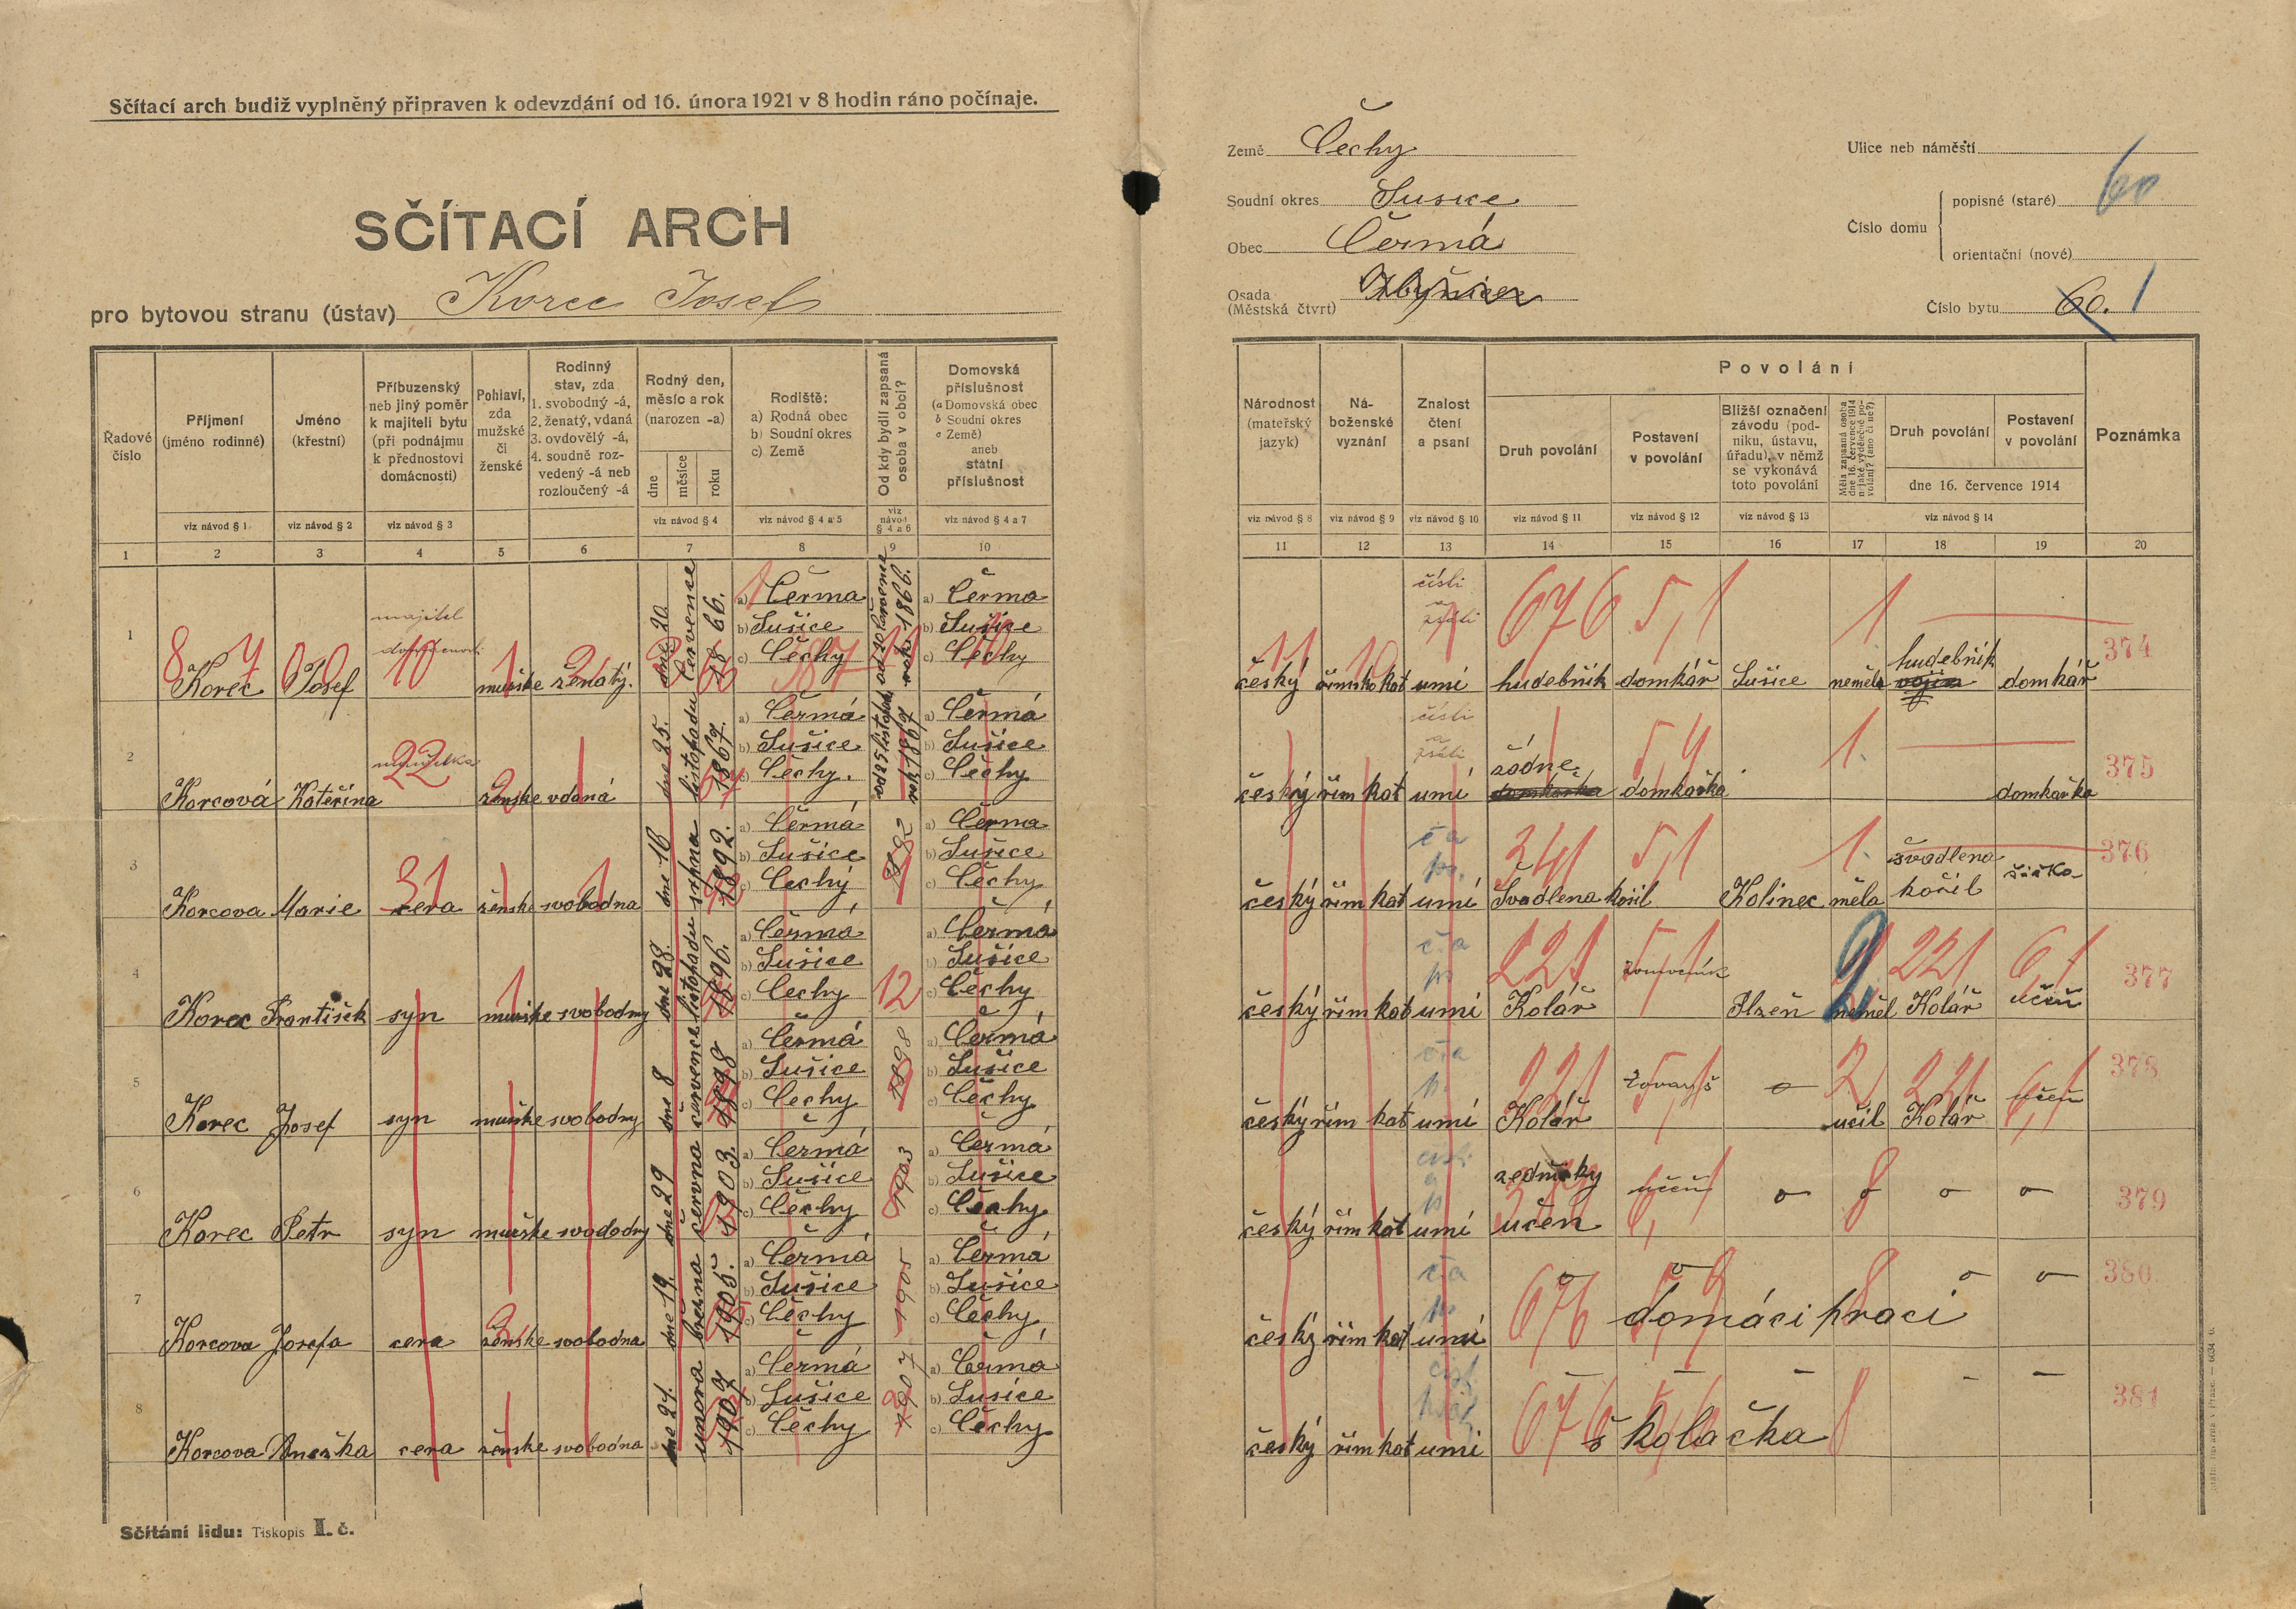 Sčítací arch budiž vyplněný připraven k odevzdání od 16. února 1921 v 8 hodin ráno počínaje.
SČÍTACÍ ARCH
pro bytovou stranu (ústav) Korec Josef
Země Čechy
Soudní okres Sušice
Obec Čermá
Osada
(Městská čtvrt)
Ulice neb náměstí
Číslo domu
popisné (staré) 60
orientační (nové)
Číslo bytu 60. 1
Řadové číslo
Příjmení (jméno rodinné)
Jméno (křestní)
Příbuzenský neb jiný poměr k majiteli bytu (při podnájmu k přednostovi domácnosti)
Pohlaví, zda mužské či ženské
Rodinný stav, zda 1. svobodný -á, 2. ženatý, vdaná 3. ovdovělý -á, 4. soudně rozvedený -á neb rozloučený -á
Rodný den, měsíc a rok (narozen -a)
dne měsíce roku
Rodiště: a) Rodná obec b) Soudní okres c) Země
Od kdy bydlí zapsaná osoba v obci?
Domovská příslušnost (a Domovská obec b Soudní okres c Země) aneb státní příslušnost
viz návod § 1 viz návod § 2 viz návod § 3 viz návod § 4 viz návod § 4 a 5 viz návod § 4 a 6 viz návod § 4 a 7
1 2 3 4 5 6 7 8 9 10
Národnost (mateřský jazyk)
Náboženské vyznání
Znalost čtení a psaní
Povolání
Druh povolání
Postavení v povolání
Bližší označení závodu (podniku, ústavu, úřadu), v němž se vykonává toto povolání
Měla zapsaná osoba dne 16. července 1914 nějaké výdělečné povolání? (ano či ne?)
Druh povolání
Postavení v povolání
dne 16. července 1914
Poznámka
viz návod § 8 viz návod § 9 viz návod § 10 viz návod § 11 viz návod § 12 viz návod § 13 viz návod § 14
11 12 13 14 15 16 17 18 19 20
1 Korec Josef majitel mužske ženatý. dne 20 července 1866. a) Čerma b) Sušice c) Čechy od 20 července roku 1866. a) Čerma b) Sušice c) Čechy
český římsko kat umí hudebník domkář Sušice neměla hudebník domkář 374
2 Korcová Kateřina ženske vdaná dne 25. listopadu 1867. a) Čermá b) Sušice c) Čechy. a) Čermá b) Sušice c) Čechy
český řím kat umí žádne domkařka domkařka 375
3 Korcova Marie cera ženske svobodna dne 16 srpna 1892. a) Čermá b) Sušice c) Čechy 1892 a) Čerma b) Sušice c) Čechy
český řím kat umí Švadlena košil Kolinec měla švadlena košil 376
4 Korec František syn mužske svobodny dne 28. listopadu 1896. a) Čermá b) Sušice c) Čechy 12 a) Čermá b) Sušice c) Čechy
český řím kat umí Kolář pomocník Plzeň neměl Kolář učeň 377
5 Korec Josef syn mužske svobodny dne 8 července 1898 a) Čermá b) Sušice c) Čechy 1898 a) Čermá b) Sušice c) Čechy
český řím kat umí Kolář tovaryš učil Kolář učeň 378
6 Korec Petr syn mužske svododny dne 29 června 1903. a) Čermá b) Sušice c) Čechy 1903 a) Čermá b) Sušice c) Čechy
český řím kat umí zednický učen učeň 379
7 Korcova Josefa cera ženske svobodna dne 19. března 1905. a) Čermá b) Sušice c) Čechy 1905 a) Čermá b) Sušice c) Čechy
český řím kat umí domáci praci 380
8 Korcova Anežka cera ženske svobodna dne 21. unora 1907 a) Čermá b) Sušice c) Čechy 1907 a) Čerma b) Sušice c) Čechy
český řím kat umi školačka 381
Sčítání lidu: Tiskopis I. č.